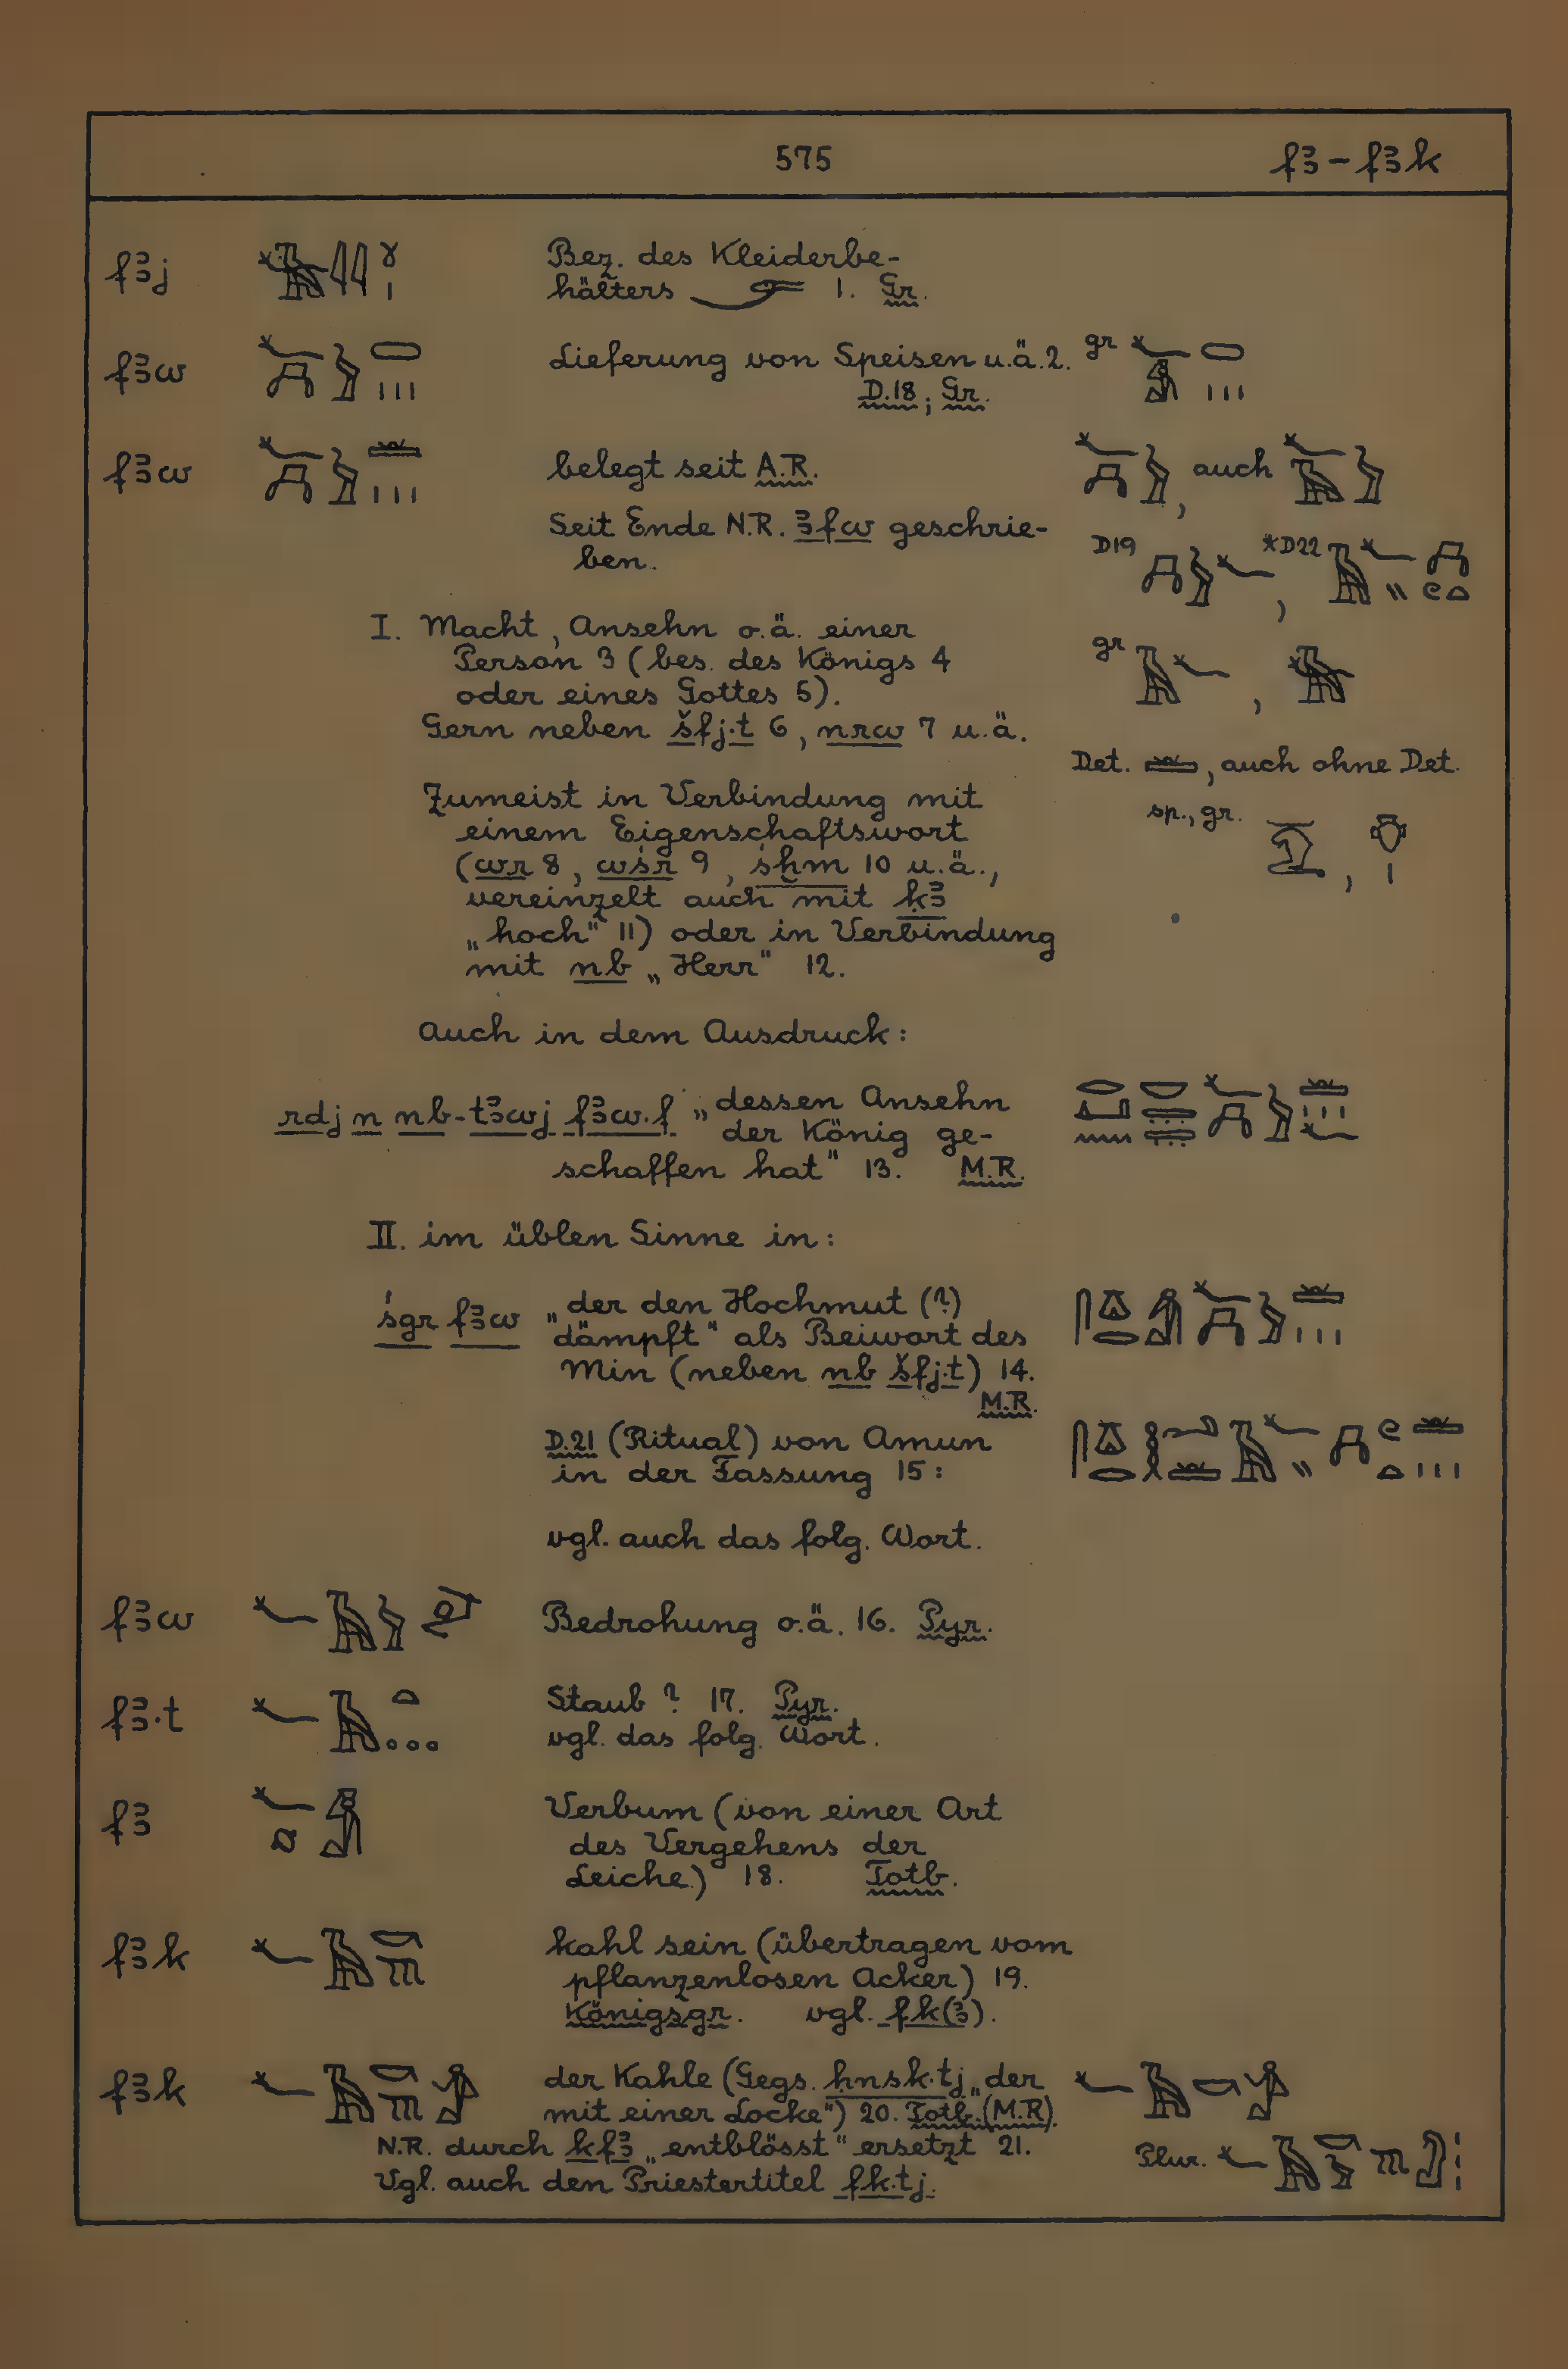 575 fꜣ – fꜣk
fꜣj Bez. des Kleiderbe-
hälters 1. Gr.
fꜣw Lieferung von Speisen u.ä. 2. gr
D.18; Gr.
fꜣw belegt seit A.R. , auch
Seit Ende N.R. ꜣfw geschrie- D19 , *D22
ben.
I. Macht, Ansehn o.ä. einer
Person 3 (bes. des Königs 4 gr ,
oder eines Gottes 5).
Gern neben šfj.t 6, nrw 7 u.ä.
Det. , auch ohne Det.
Zumeist in Verbindung mit
einem Eigenschaftswort sp., gr. ,
(wr 8, wśr 9, śḫm 10 u.ä.,
vereinzelt auch mit ḳꜣ
„hoch" 11) oder in Verbindung
mit nb „Herr" 12.
Auch in dem Ausdruck:
rdj n nb-tꜣwj fꜣw.f „dessen Ansehn
der König ge-
schaffen hat" 13. M.R.
II. im üblen Sinne in:
śgr fꜣw „der den Hochmut (?)
dämpft" als Beiwort des
Min (neben nb šfj.t) 14.
M.R.
D.21 (Ritual) von Amun
in der Fassung 15:
vgl. auch das folg. Wort.
fꜣw Bedrohung o.ä. 16. Pyr.
fꜣ.t Staub ? 17. Pyr.
vgl. das folg. Wort.
fꜣ Verbum (von einer Art
des Vergehens der
Leiche) 18. Totb.
fꜣk kahl sein (übertragen vom
pflanzenlosen Acker) 19.
Königsgr. vgl. fk(ꜣ).
fꜣk der Kahle (Gegs. ḥnsk.tj „der
mit einer Locke") 20. Totb. (M.R).
N.R. durch kfꜣ „entblösst" ersetzt 21. Plur.
Vgl. auch den Priestertitel fk.tj.